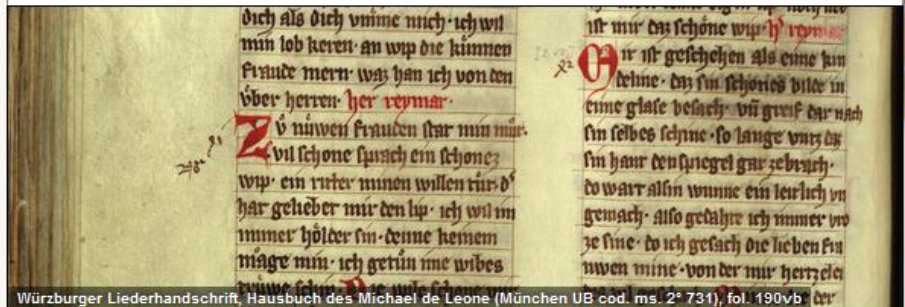 dich als dich vnime mich · ich wil
min lob keren · an wip die kunnen
fraude mern · waz han ich von den
vͦber herren · her reymar ·
Zvͦ nuwen frauden stat min muͦt ·
vil schone sprach ein schonez
wip · ein ritter minen willen tuͦt · dˢ
hat gelieber mir den lip · ich wil im
immer hoͤlder sin · denne keinem
mage min · ich getuͦn ime wibes
schin ·
ist mir daz schoͤne wip · hˢ reymar
Mir ist geschehen als eime kin
deline · daz sin schones bilde in
eime glase besach · vn̄ greif dar nach
sin selbes schine · so lange vntz daz
sin hant den spiegel gar zebrach ·
do wart allsin wunne ein leitlich vn
gemach · also gedahte ich immer vro
ze sine · do ich gesach die lieben fra
uwen mine · von der mir hertzelei
der
Würzburger Liederhandschrift, Hausbuch des Michael de Leone (München UB cod. ms. 2° 731), fol. 190vb